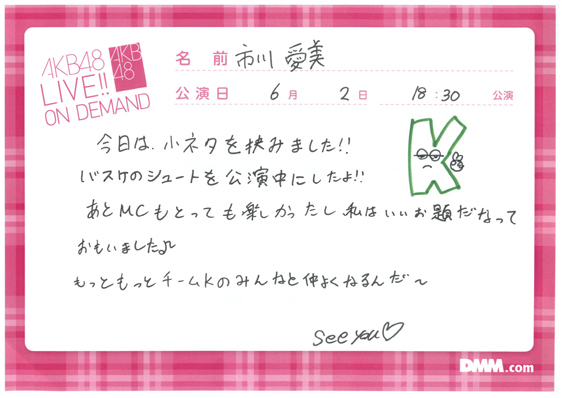 AKB48
LIVE!!
ON DEMAND
AKB
48
名前 市川 愛美
公演日 6月 2日 18:30 公演
今日は、小ネタを挟みました!!
バスケのシュートを公演中にしたよ!!
あとMCもとっても楽しかったし 私はいいお題だなって
おもいました♪
もっともっとチームKのみんなと仲よくなるんだ〜
K
see you♡
DMM.com